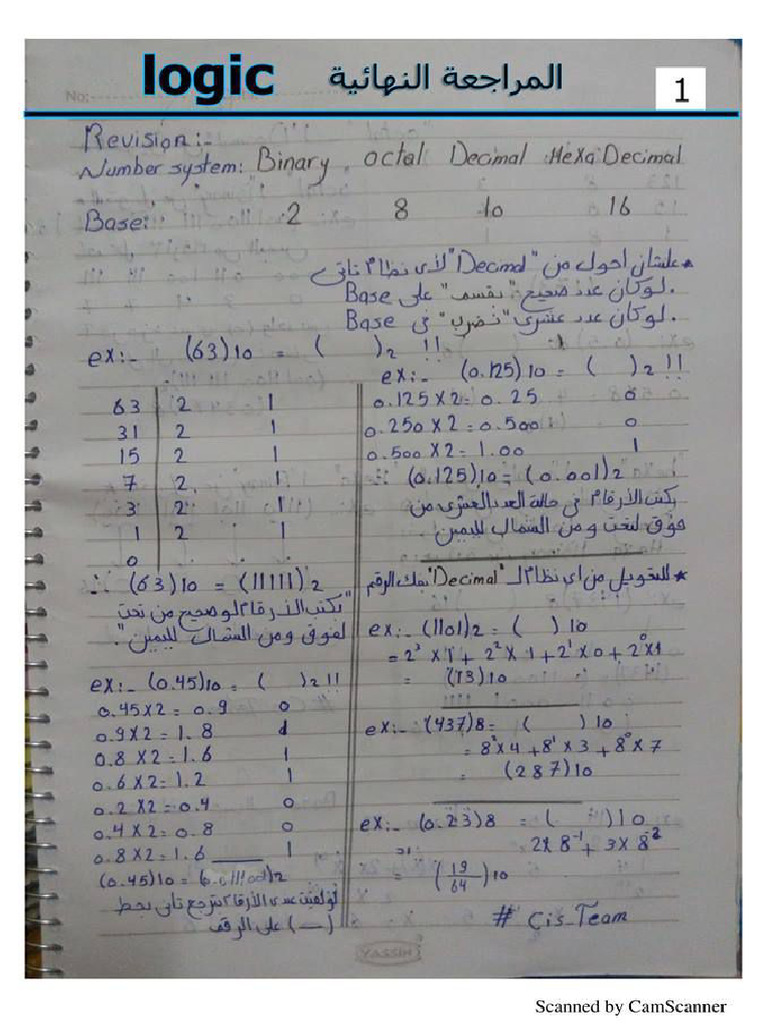 logic المراجعة النهائية 1
No:
Revision:-
Number system: Binary, octal Decimal HexaDecimal
Base: 2 8 10 16
* علشان احول من "Decimal" لأى نظام تانى
. لوكان عدد صحيح "نقسم" على Base
. لوكان عدد عشرى "نضرب" فى Base
ex:- (63)10 = ( )2 !!
63 2 1
31 2 1
15 2 1
7 2 1
3 2 1
1 2 1
0
(63)10 = (11111)2
"تكتب الأرقام لو صحيح من تحت
لفوق ومن الشمال لليمين".
ex:- (0.45)10 = ( )2 !!
0.45X2 = 0.9 0
0.9X2 = 1.8 1
0.8X2 = 1.6 1
0.6X2 = 1.2 1
0.2X2 = 0.4 0
0.4X2 = 0.8 0
0.8X2 = 1.6 1
(0.45)10 = ( )2
لو لقيت عندى الأرقام بترجع تانى بحط
(—) على الرقم
ex:- (0.125)10 = ( )2 !!
0.125X2 = 0.25 0
0.250X2 = 0.500 0
0.500X2 = 1.00 1
(0.125)10 = (0.001)2
يكتب الأرقام فى حالة العدد العشرى من
فوق لتحت ومن الشمال لليمين.
* للتحويل من اى نظام لـ "Decimal" الرقم
ex:- (1101)2 = ( )10
= 2³X1 + 2²X1 + 2¹X0 + 2⁰X1
= (13)10
ex:- (437)8 = ( )10
= 8²X4 + 8¹X3 + 8⁰X7
= (287)10
ex:- (0.23)8 = ( )10
= 2X8⁻¹ + 3X8⁻²
= (19/64)10
# Cis_Team
YASSIN
Scanned by CamScanner